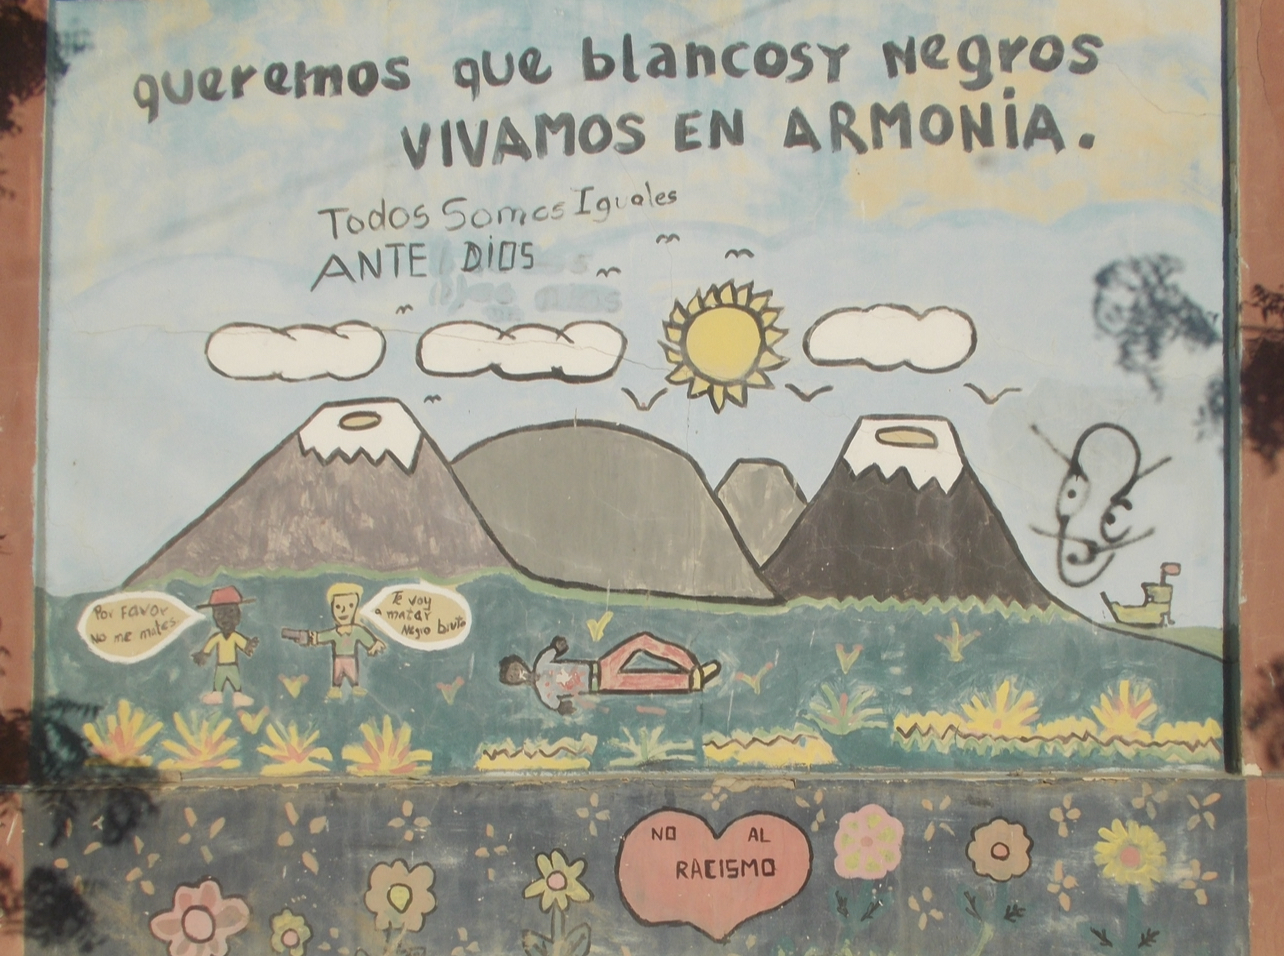 queremos que blancos y negros
VIVAMOS EN ARMONÍA.
Todos Somos Iguales
ANTE DIOS
Por Favor
No me mates
Te voy
a matar
Negro bruto
NO AL
RACISMO